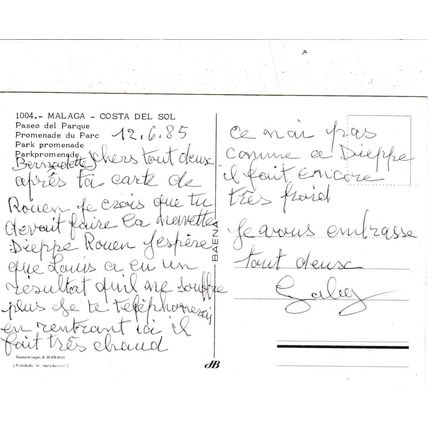 1004.- MALAGA - COSTA DEL SOL
Paseo del Parque
Promenade du Parc
Park promenade
Parkpromenade
12.6.85
Bernadette chers tout deux
après ta carte de
Rouen je crois que tu
devait faire la navette
Dieppe Rouen j'espère
que Louis a eu un
résultat qu'il ne souffre
plus je te téléphonerai
en rentrant ici il
fait très chaud
Depósito Legal, B.
(Prohibida la reproducción)
BAENA
ce n'ai pas
comme a Dieppe
il fait encore
très froid
je vous embrasse
tout deux
Gaby